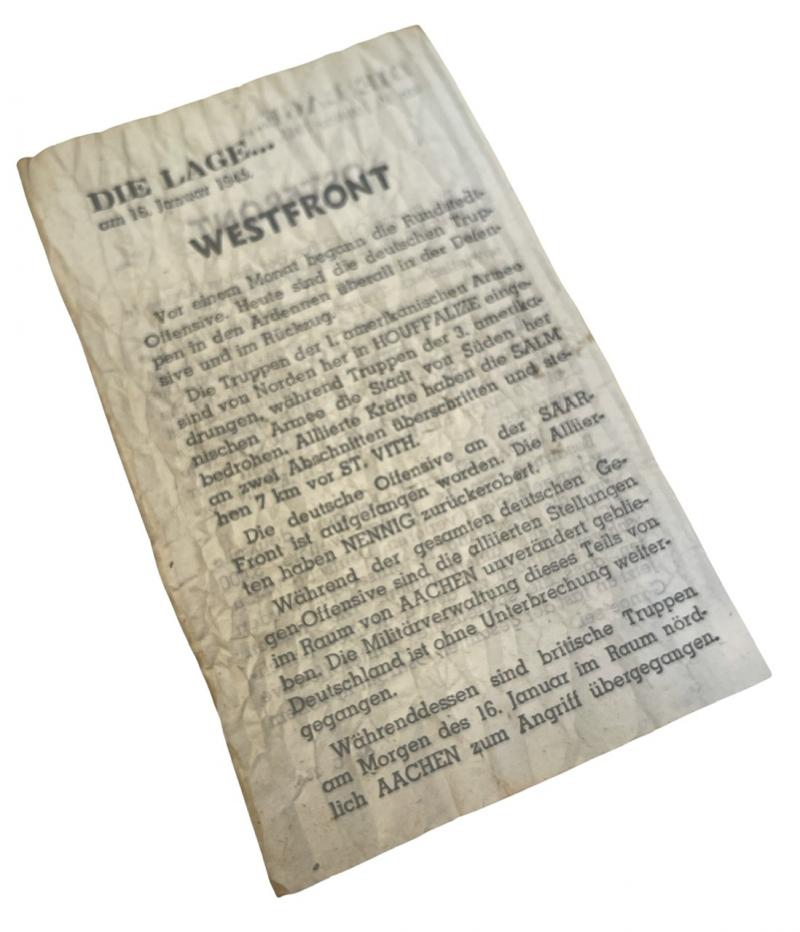 DIE LAGE...
am 16. Januar 1945.
WESTFRONT
Vor einem Monat begann die Rundstedt-
Offensive. Heute sind die deutschen Trup-
pen in den Ardennen überall in der Defen-
sive und im Rückzug.
Die Truppen der 1. amerikanischen Armee
sind von Norden her in HOUFFALIZE einge-
drungen, während Truppen der 3. amerika-
nischen Armee die Stadt von Süden her
bedrohen. Alliierte Kräfte haben die SALM
an zwei Abschnitten überschritten und ste-
hen 7 km vor ST. VITH.
Die deutsche Offensive an der SAAR-
Front ist aufgefangen worden. Die Alliier-
ten haben NENNIG zurückerobert.
Während der gesamten deutschen Ge-
gen-Offensive sind die alliierten Stellungen
im Raum von AACHEN unverändert geblie-
ben. Die Militärverwaltung dieses Teils von
Deutschland ist ohne Unterbrechung weiter-
gegangen.
Währenddessen sind britische Truppen
am Morgen des 16. Januar im Raum nörd-
lich AACHEN zum Angriff übergegangen.